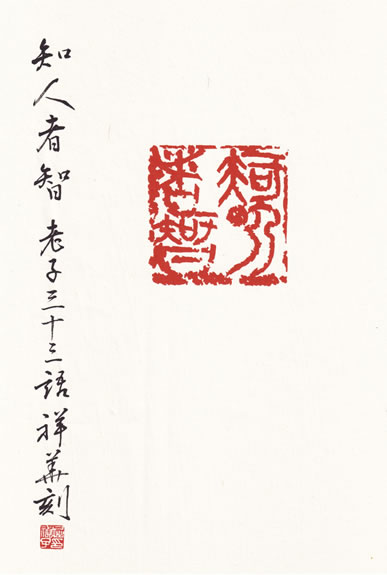 知人者智
知人者智 老子三十三語 祥華刻